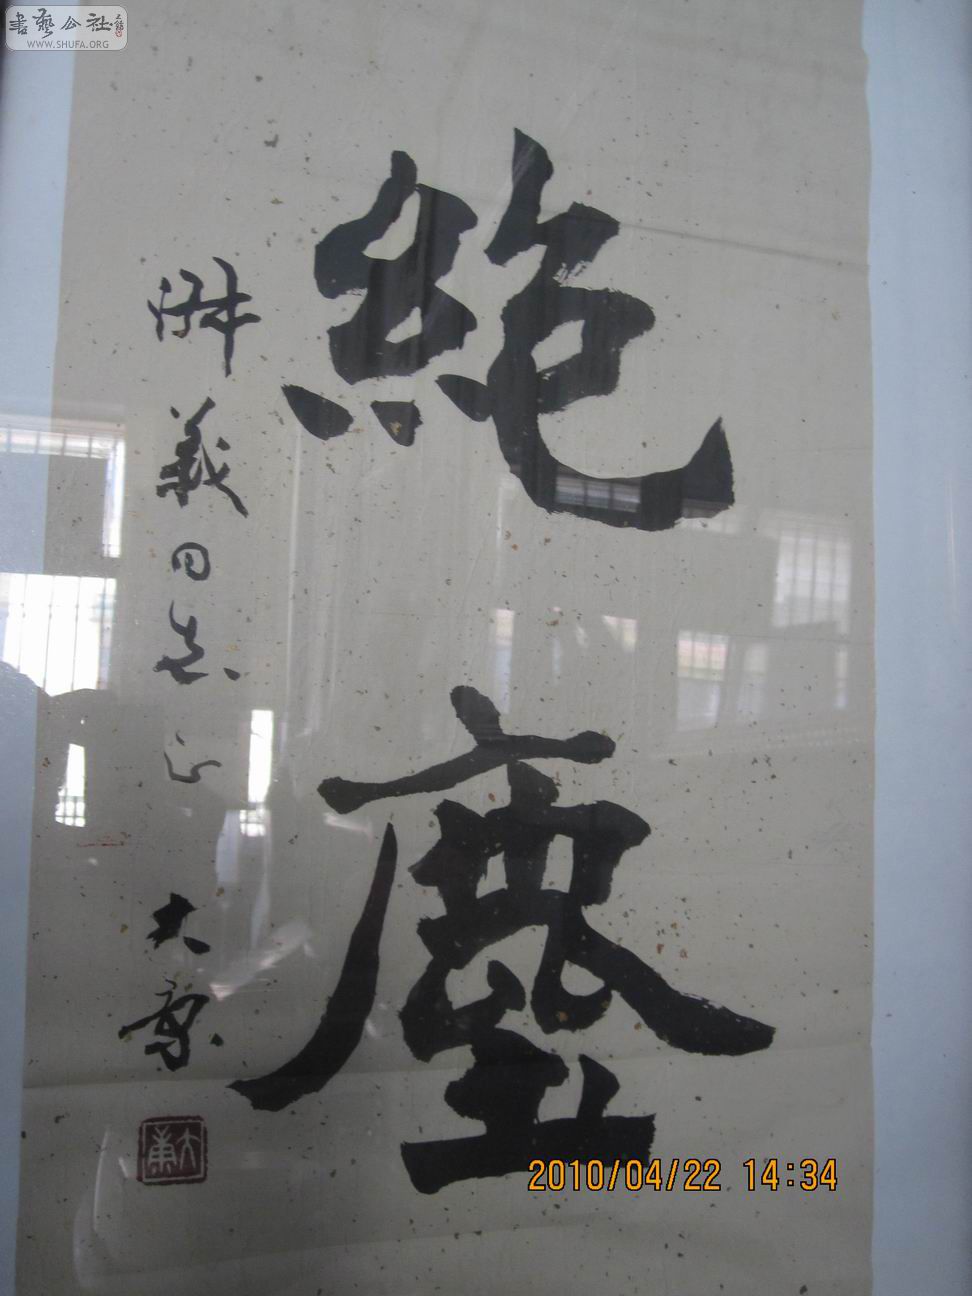 書藝公社
WWW.SHUFA.ORG
絶塵
義同志正
大康
大康
2010/04/22 14:34